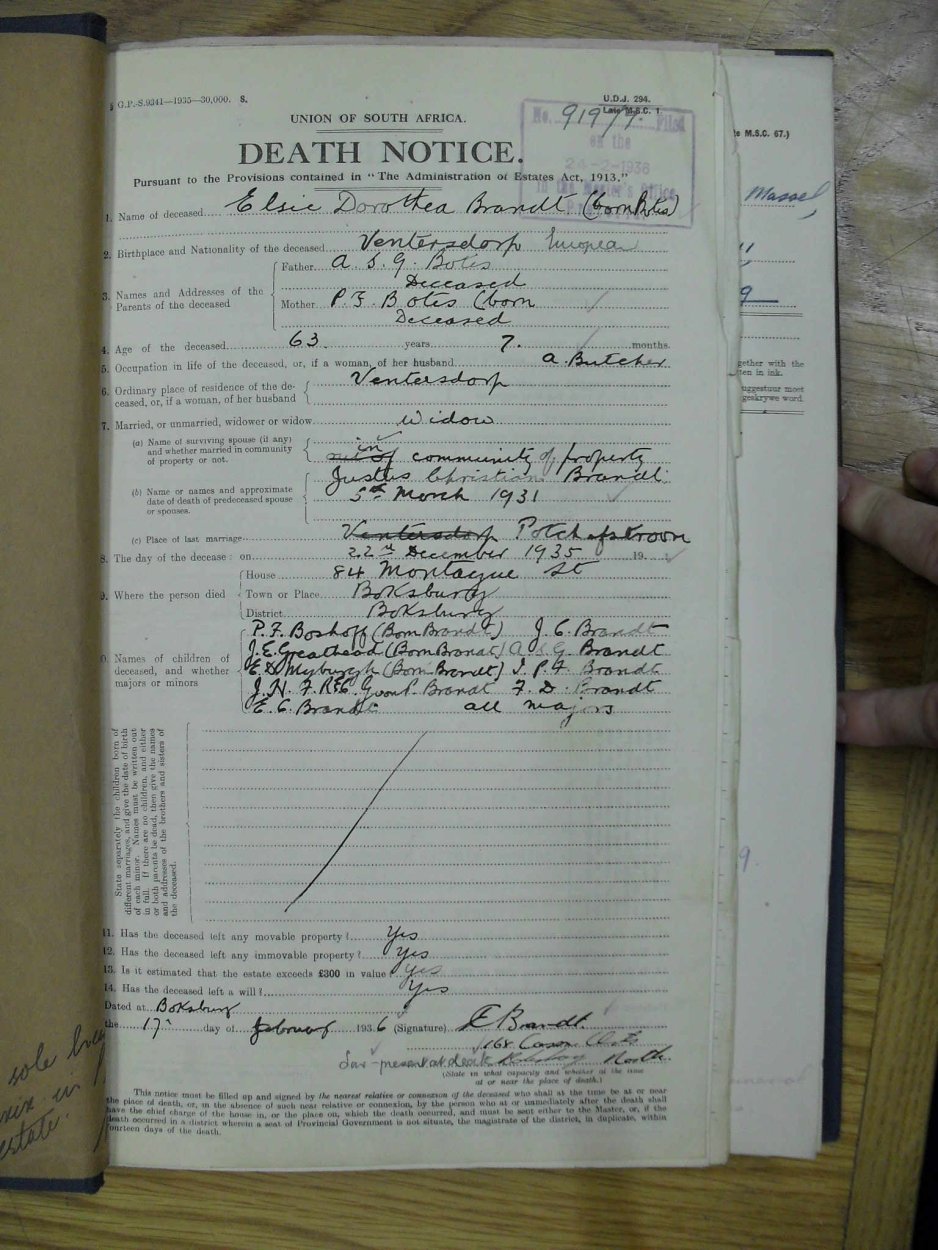 G.P.-S.9341—1935—30,000. S.
U.D.J. 294.
Late M.S.C. 1.
No. 91977. Filed
on the
24-2-1936
in the Master's Office
UNION OF SOUTH AFRICA.
DEATH NOTICE.
Pursuant to the Provisions contained in "The Administration of Estates Act, 1913."
1. Name of deceased Elsie Dorothea Brandt (born Botes)
2. Birthplace and Nationality of the deceased Ventersdorp European
3. Names and Addresses of the Parents of the deceased
Father A S. G. Botes
Deceased
Mother P. F. Botes (born
Deceased
4. Age of the deceased 63 years 7. months.
5. Occupation in life of the deceased, or, if a woman, of her husband a Butcher
6. Ordinary place of residence of the de-
ceased, or, if a woman, of her husband
Ventersdorp
7. Married, or unmarried, widower or widow Widow
(a) Name of surviving spouse (if any)
and whether married in community
of property or not.
in
out of community of property
(b) Name or names and approximate
date of death of predeceased spouse
or spouses.
Justus Christiaan Brandt
5th March 1931
(c) Place of last marriage Ventersdorp Potchefstroom
8. The day of the decease: on 22nd December 1935 19
9. Where the person died
House 84 Montague St
Town or Place Boksburg
District Boksburg
Names of children of
deceased, and whether
majors or minors
P. F. Boshoff (Born Brandt) J. C. Brandt
J. E. Greathead (Born Brandt) A S G. Brandt
E. D. Myburgh (Born Brandt) J. P. F. Brandt
J. H. F. Brandt F. D. Brandt
E. C. Brandt all majors
State separately the children born of
different marriages, and give the date of birth
of each minor. Names must be written out
in full. If there are no children, and either
or both parents be dead, then give the names
and addresses of the brothers and sisters of
the deceased.
11. Has the deceased left any movable property? Yes
12. Has the deceased left any immovable property? Yes
13. Is it estimated that the estate exceeds £300 in value? Yes
14. Has the deceased left a will? Yes
Dated at Boksburg
the 17th day of February 1936 (Signature) E Brandt.
168 Cason
Son - present at death North.
(State in what capacity and whether at the time
at or near the place of death.)
This notice must be filled up and signed by the nearest relative or connexion of the deceased who shall at the time be at or near
the place of death, or, in the absence of such near relative or connexion, by the person who at or immediately after the death shall
have the chief charge of the house in, or the place on, which the death occurred, and must be sent either to the Master, or, if the
death occurred in a district wherein a seat of Provincial Government is not situate, the magistrate of the district, in duplicate, within
fourteen days of the death.
te M.S.C. 67.)
gether with the
ten in ink.
uggestuur moet
geskrywe word.
sole
in
estate.